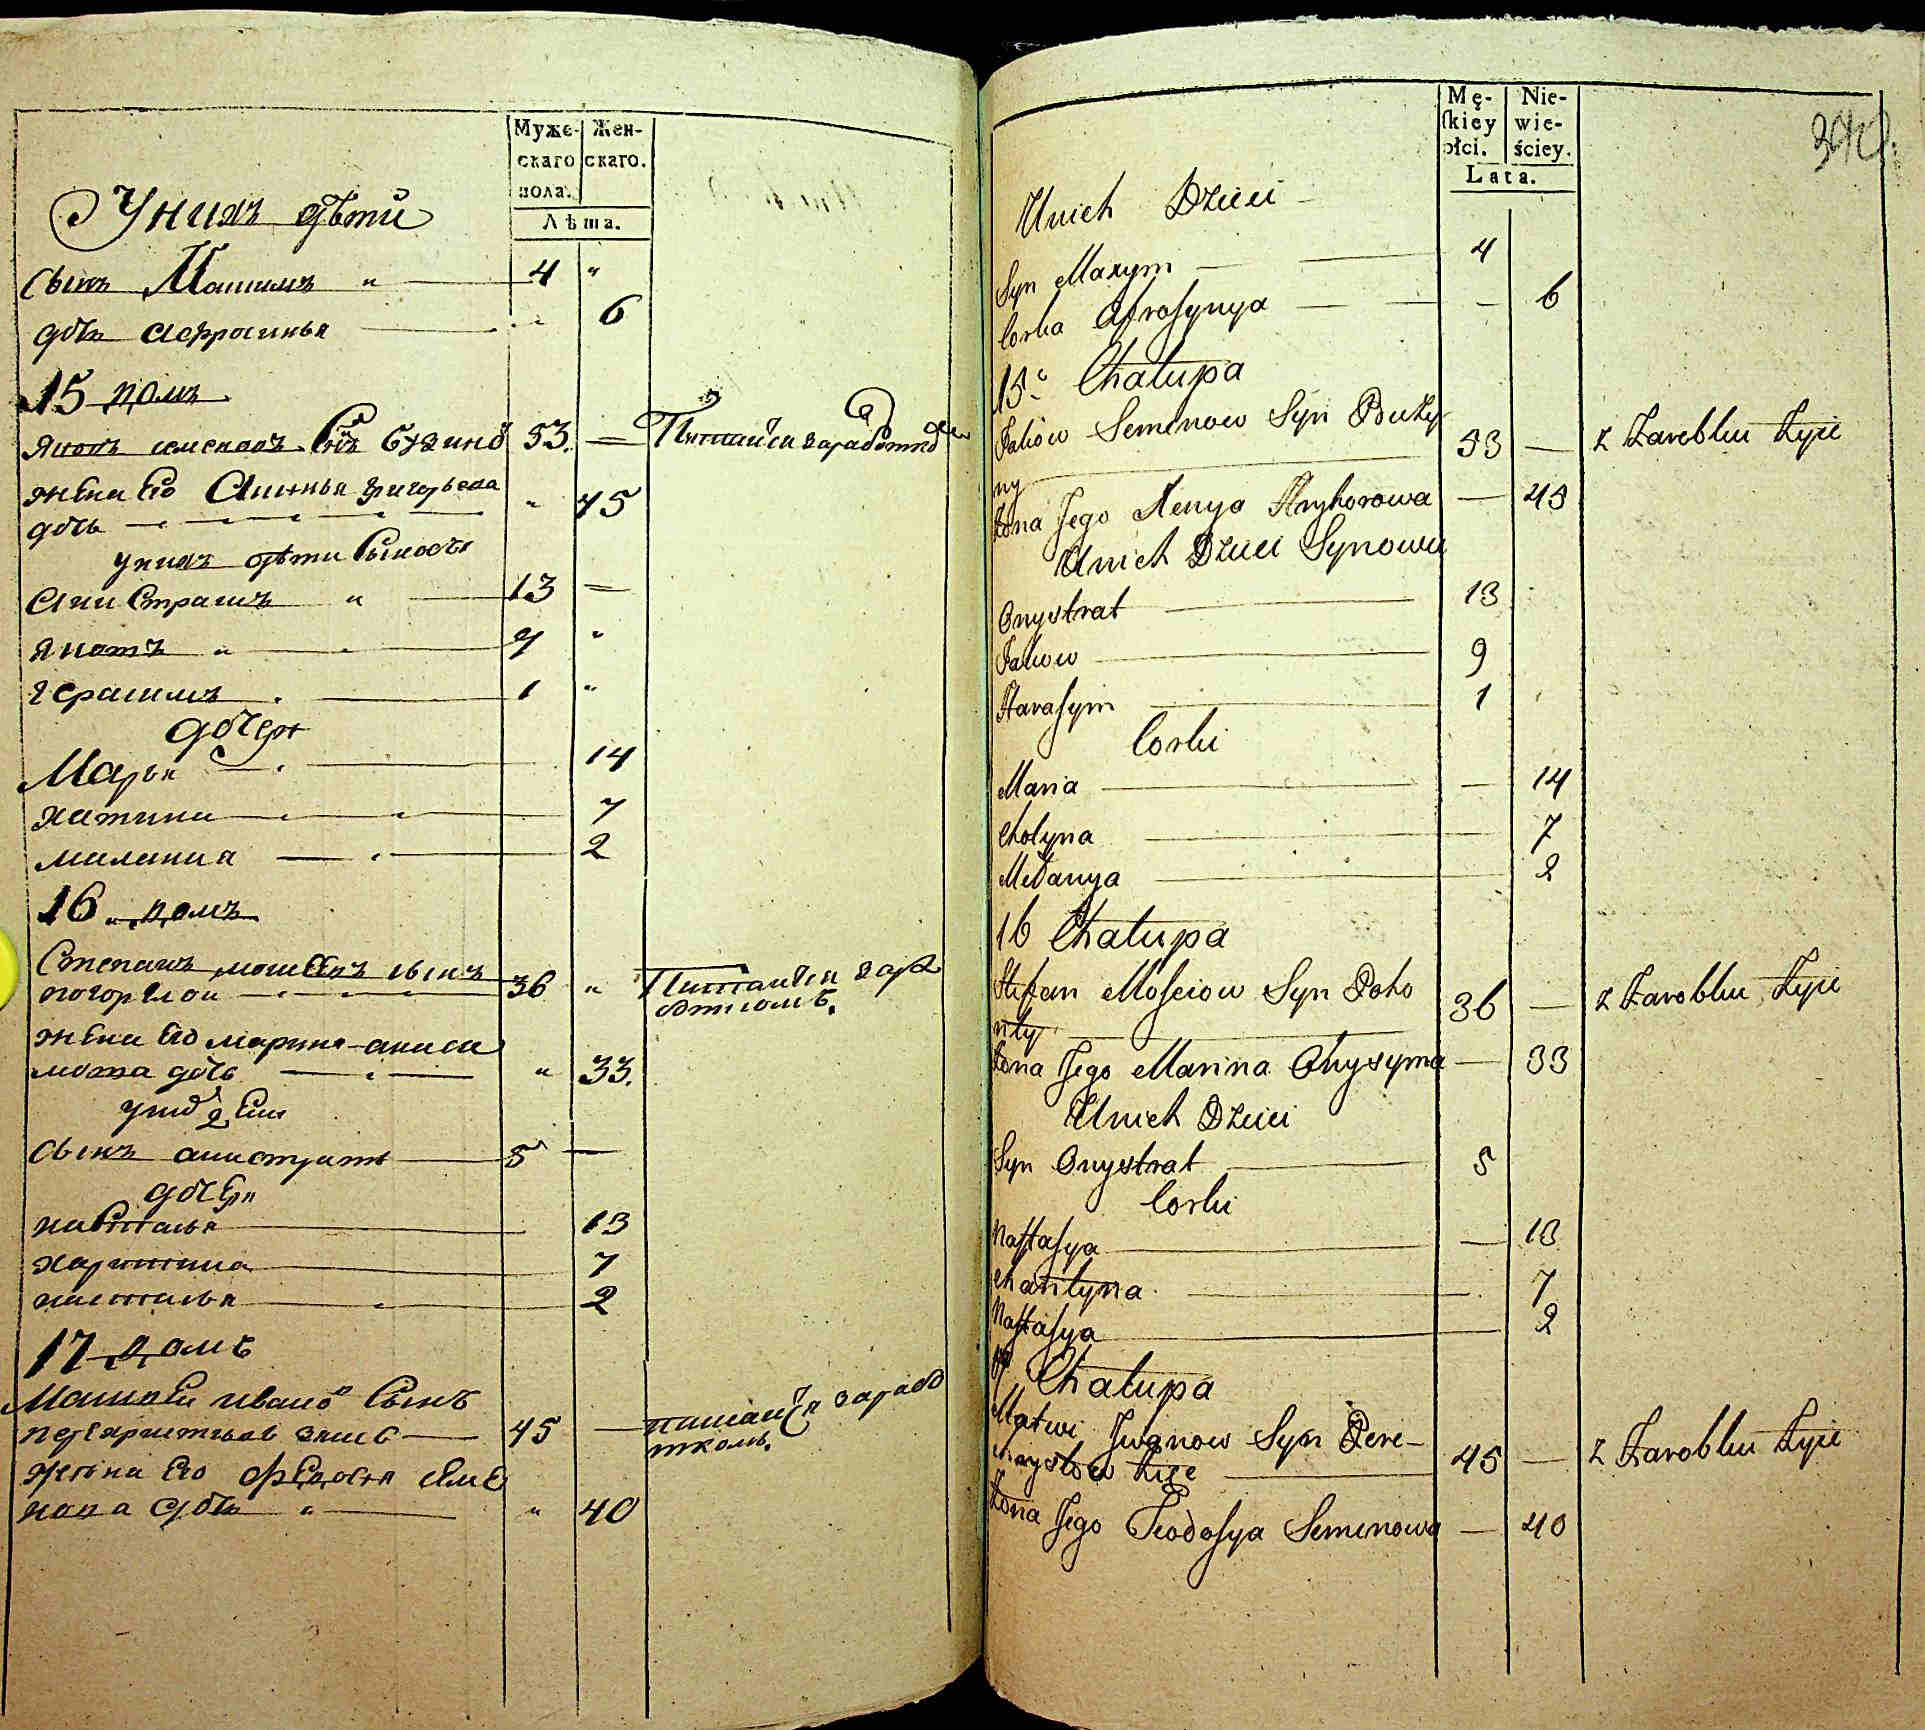 Муже-
скаго
пола.
Жен-
скаго.
Лѣта.
Унихъ дѣти
сынъ Максимъ 4
дочь Афросинья 6
15 домъ
53. Питаитса заработко
жена Его Аксинья Григорьева
дочь 45
унихъ дѣти сыновья
Анистратъ 13
Яковъ 9
Герасимъ 1
дочери
Марья 14
хатина 7
милания 2
16 домъ
Степанъ мосеевъ сынъ
погорелои 36 Питаитса зара
боткомъ.
жена Его марина аниси
мова дочь 33.
сынъ анистратъ 5
дочери
настасья 13
харитина 7
настасья 2
17 домъ
Матвеи ивановъ Сынъ
45 питаитса зарабо
ткомъ.
жена Его Федосья семе
нова дочь 40
Mę-
ſkiey
płci.
Nie-
wie-
ściey.
Lata.
Unich Dzieci
Syn Maxym 4
Corka Afrosynya 6
15 Chalupa
Jakow Semenow Syn Buzy
ny 53 z Zarobku Zyie
Zona Jego Xenya Hryhorowa 45
Unich Dzieci Synowie
Onystrat 13
Jakow 9
Harasym 1
Corki
Maria 14
Chotyna 7
Melanya 2
16 Chalupa
Stefan Mosciow Syn Poho
36 z Zarobku Zyie
Zona Jego Marina Onysyma 33
Unich Dzieci
Syn Onystrat 5
Corki
Nastasya 13
Charytyna 7
Nastasya 2
17 Chalupa
Matwi Jwanow Syn Pere-
45 z Zarobku Zyie
Zona Jego Teodosya Semenowa 40